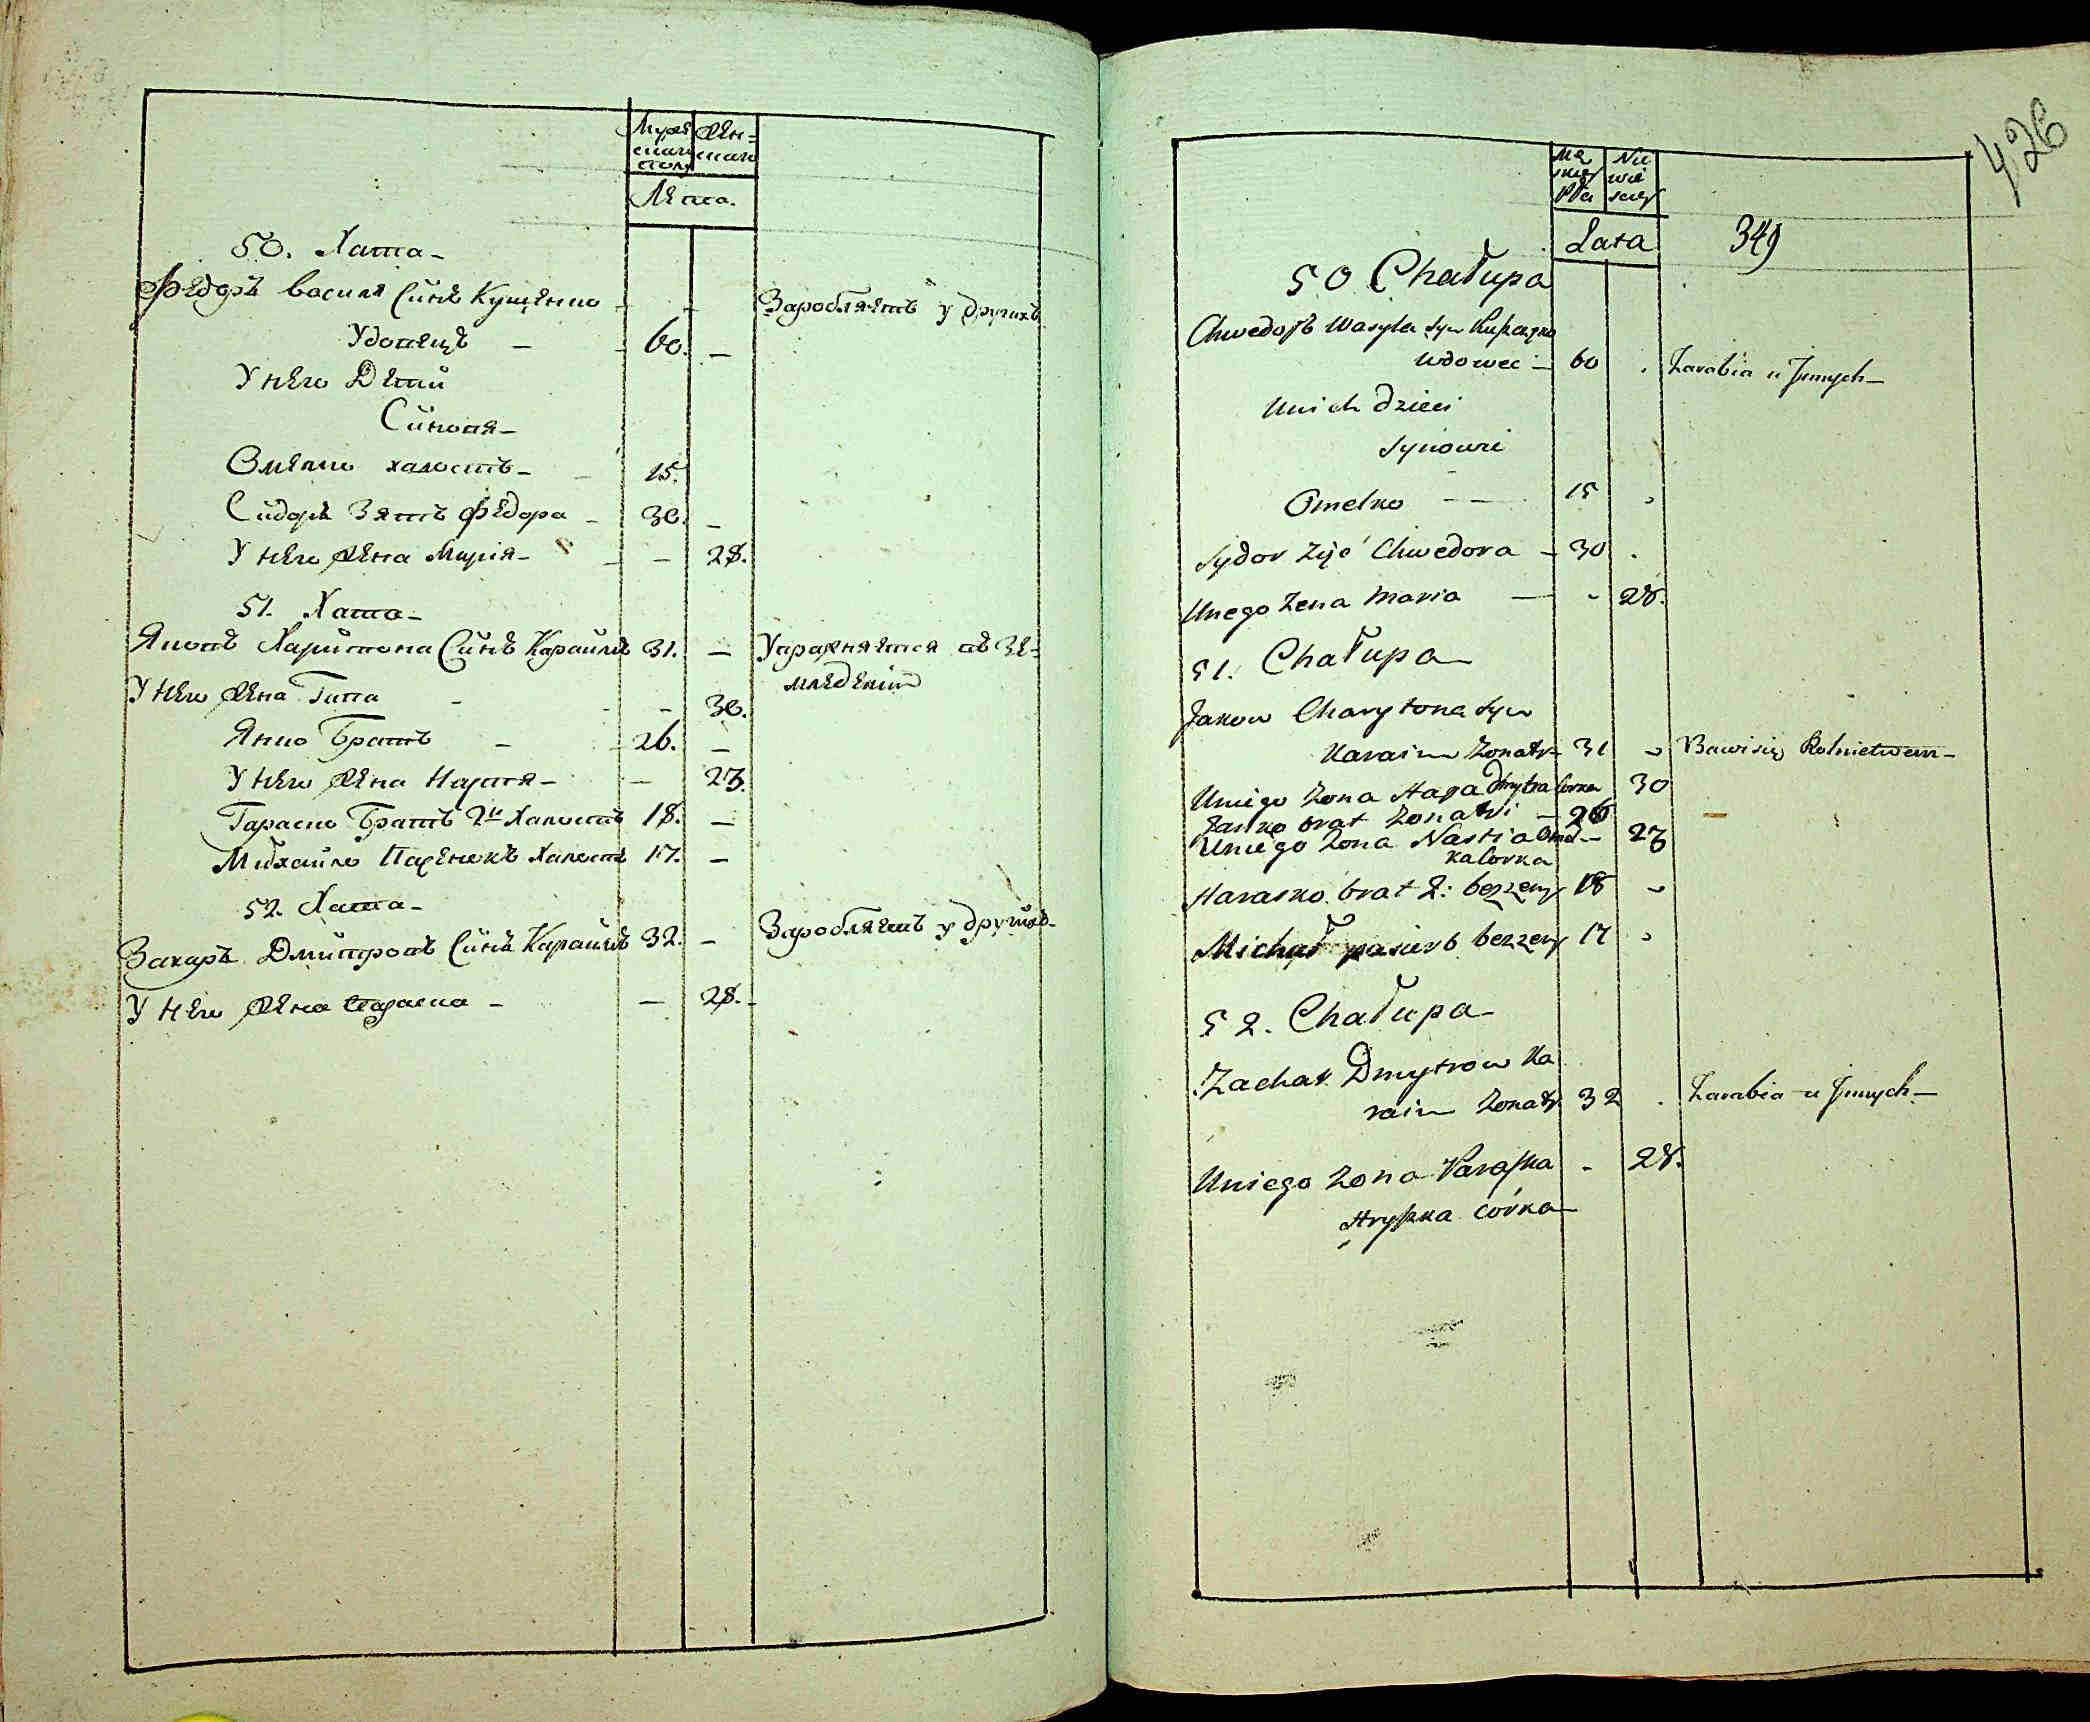 Мужеска полу
Женска
Лета.
50. Хата
Федоръ василя Синъ Кущенко
Удовецъ 60. Заробляетъ у другихъ
У него Дети
Синовя
Омелко халостъ 15.
Сидоръ Зять Федора 30.
У него Жена Марія 28.
51. Хата
Яковъ Харитона Синъ Караимъ 31. Упражняется въ зе-
мледеліи
У него Жена Гапа 30.
Янко Братъ 26.
У него Жена Настя 23.
Гараско Братъ 2й Халостъ 18.
Михайло Халостъ 17.
52. Хата
Захаръ Дмитровъ Синъ Караимъ 32. Заробляетъ у другихъ
У него Жена Параска 28.
426
349
Męskiej Płci
Niewieściej
Lata
50 Chałupa
Chwedor Wasyla Syn
Wdowec 60 Zarabia u Jnnych
Unich dzieci
Synowie
Omelko 15
Sydor Zięć Chwedora 30
Unego Żena Maria 28.
51. Chałupa
Jakow Charytona Syn
Karaim Żonaty 31 Bawi się Rolnictwem
Uniego Żona Hapa Dmytra Corka 30
Jaśko brat Żonaty 26
Uniego Żona Nastia 23
ka Corka
Harasko brat 2: bezżeny 18
Michał pasierb bezżeny 17
52. Chałupa
Zachar Dmytrow Ka
raim Żonaty 32 Zarabia u Jnnych
Uniego Żona Paraska 28.
Hryszka córka